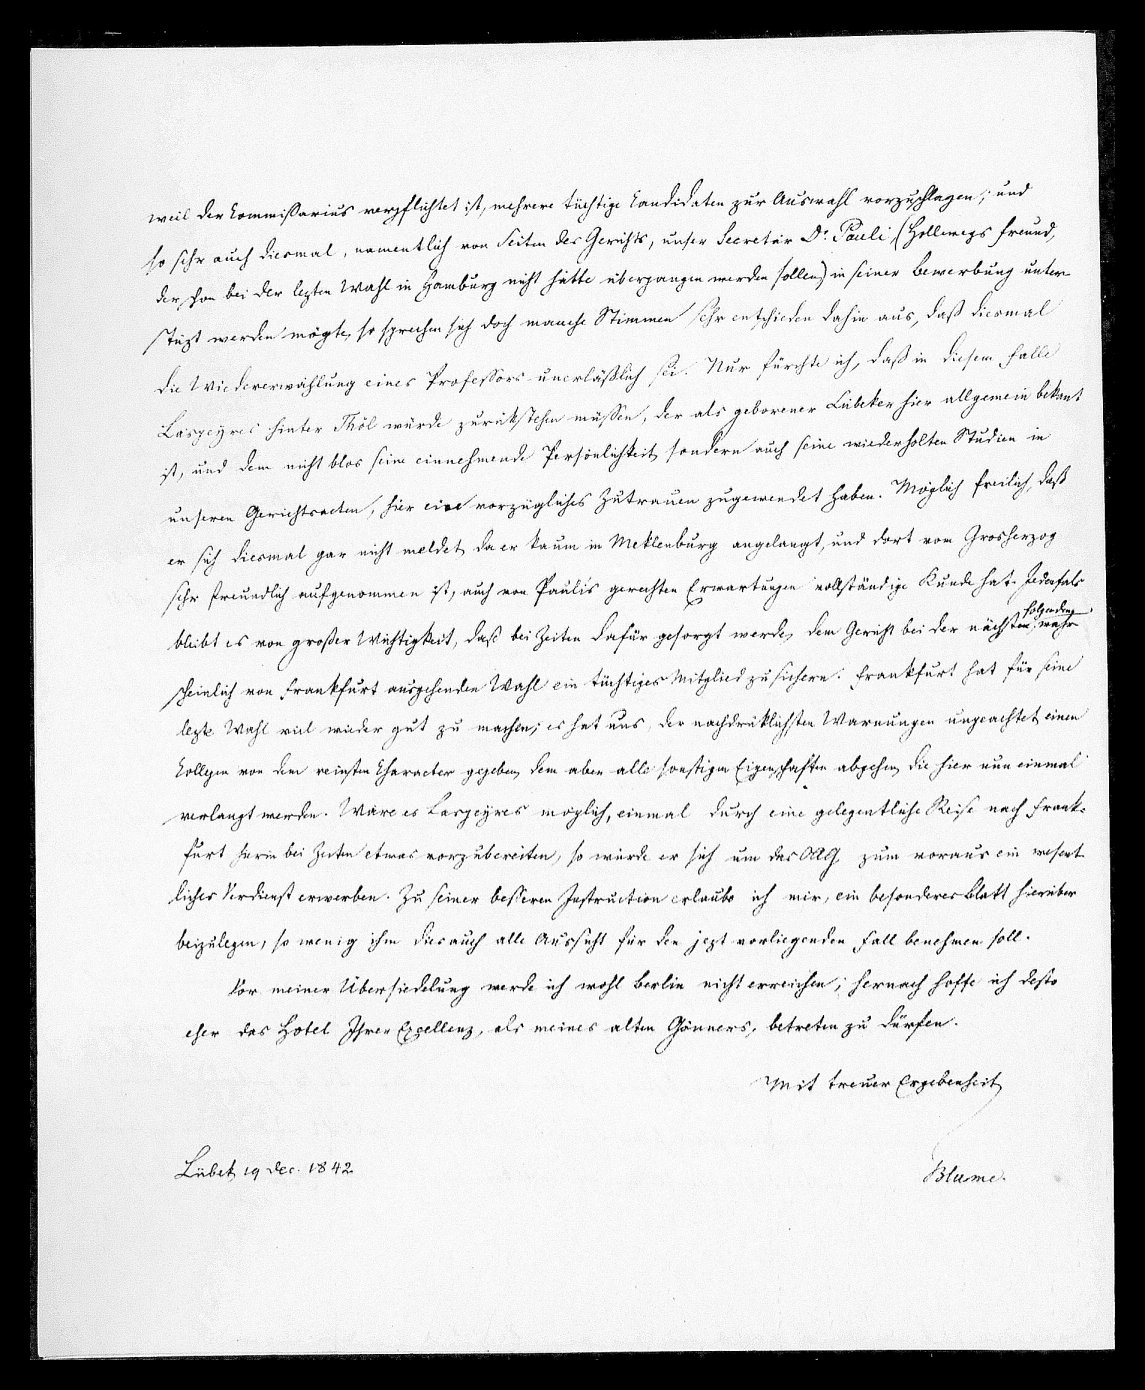 weil der Commissarius verpflichtet ist, mehrere tüchtige Candidaten zur Auswahl vorzuschlagen; und
so sehr auch diesmal, namentlich von Seiten des Gerichts, unser Secretär Dr. Pauli (Hollwegs Freund,
der schon bei der lezten Wahl in Hamburg nicht hätte übergangen werden sollen) in seiner Bewerbung unter-
stüzt werden mögte, so sprechen sich doch manche Stimmen sehr entschieden dahin aus, daß diesmal
die Wiedererwählung eines Professors unerläßlich sei. Nur fürchte ich, daß in diesem Falle
Laspeyres hinter Thöl würde zurükstehen müssen, der als geborener Lübeker hier allgemein bekant
ist, und dem nicht blos seine einnehmende Persönlichkeit, sondern auch seine wiederholten Studien in
unseren Gerichtsacten, hier ein vorzügliches Zutrauen zugewendet haben. Möglich freilich, daß
er sich diesmal gar nicht meldet, da er kaum in Meklenburg angelangt, und dort vom Grosherzog
sehr freundlich aufgenommen ist, auch von Paulis gerechten Erwartungen vollständige Kunde hat. Jedenfals
bleibt es von großer Wichtigkeit, daß bei Zeiten dafür gesorgt werde, dem Gericht bei der nächsten folgenden, wahr-
scheinlich von Frankfurt ausgehenden Wahl ein tüchtiges Mitglied zu sichern. Frankfurt hat für seine
lezte Wahl viel wieder gut zu machen; es hat uns, der nachdrüklichsten Warnungen ungeachtet, einen
Collegen von dem reinsten Character gegeben, dem aber alle sonstigen Eigenschaften abgehen, die hier nun einmal
verlangt werden. Wäre es Laspeyres möglich, einmal durch eine gelegentliche Reise nach Frank-
furt hierin bei Zeiten etwas vorzubereiten, so würde er sich um das OAG. zum voraus ein wesent-
liches Verdienst erwerben. Zu seiner besseren Instruction erlaube ich mir, ein besonderes Blatt hierüber
beizulegen, so wenig ihm dies auch alle Aussicht für den jezt vorliegenden Fall benehmen soll.
Vor meiner Übersiedelung werde ich wohl Berlin nicht erreichen; hernach hoffe ich desto
eher das Hotel Ihrer Excellenz, als meines alten Gönners, betreten zu dürfen.
Mit treuer Ergebenheit
Lübek 19 Dec. 1842
Blume.